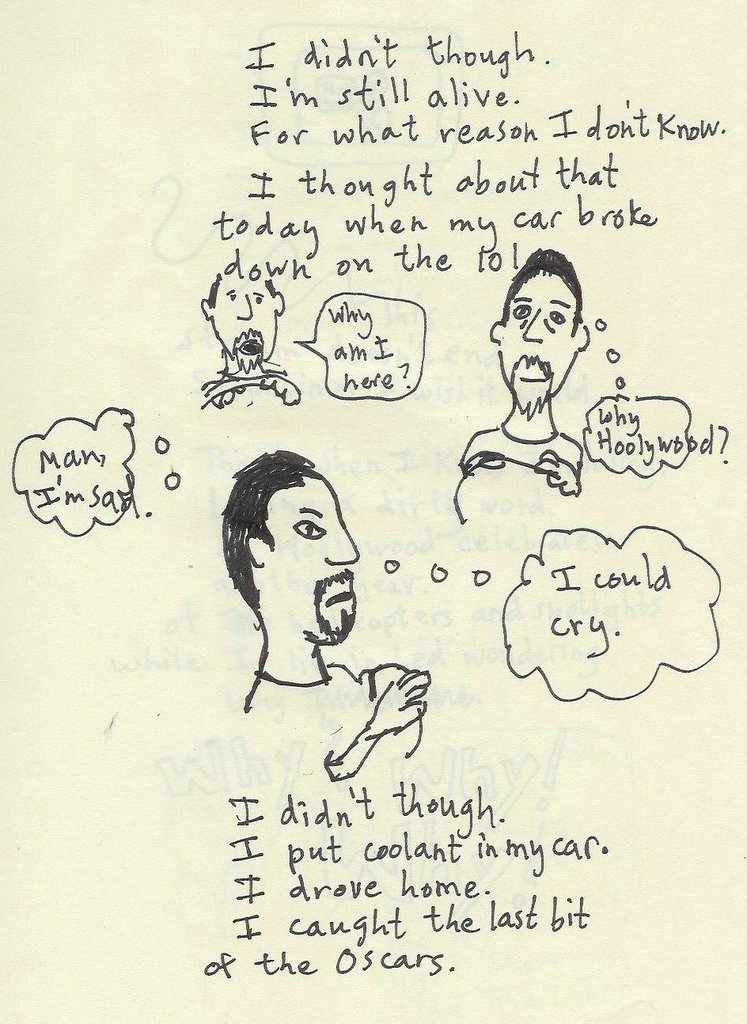 I didn't though.
I'm still alive.
For what reason I don't know.
I thought about that
today when my car broke
down on the 101
Why
am I
here?
Why
Hoolywood?
Man,
I'm sad.
I could
cry.
I didn't though.
I put coolant in my car.
I drove home.
I caught the last bit
of the Oscars.